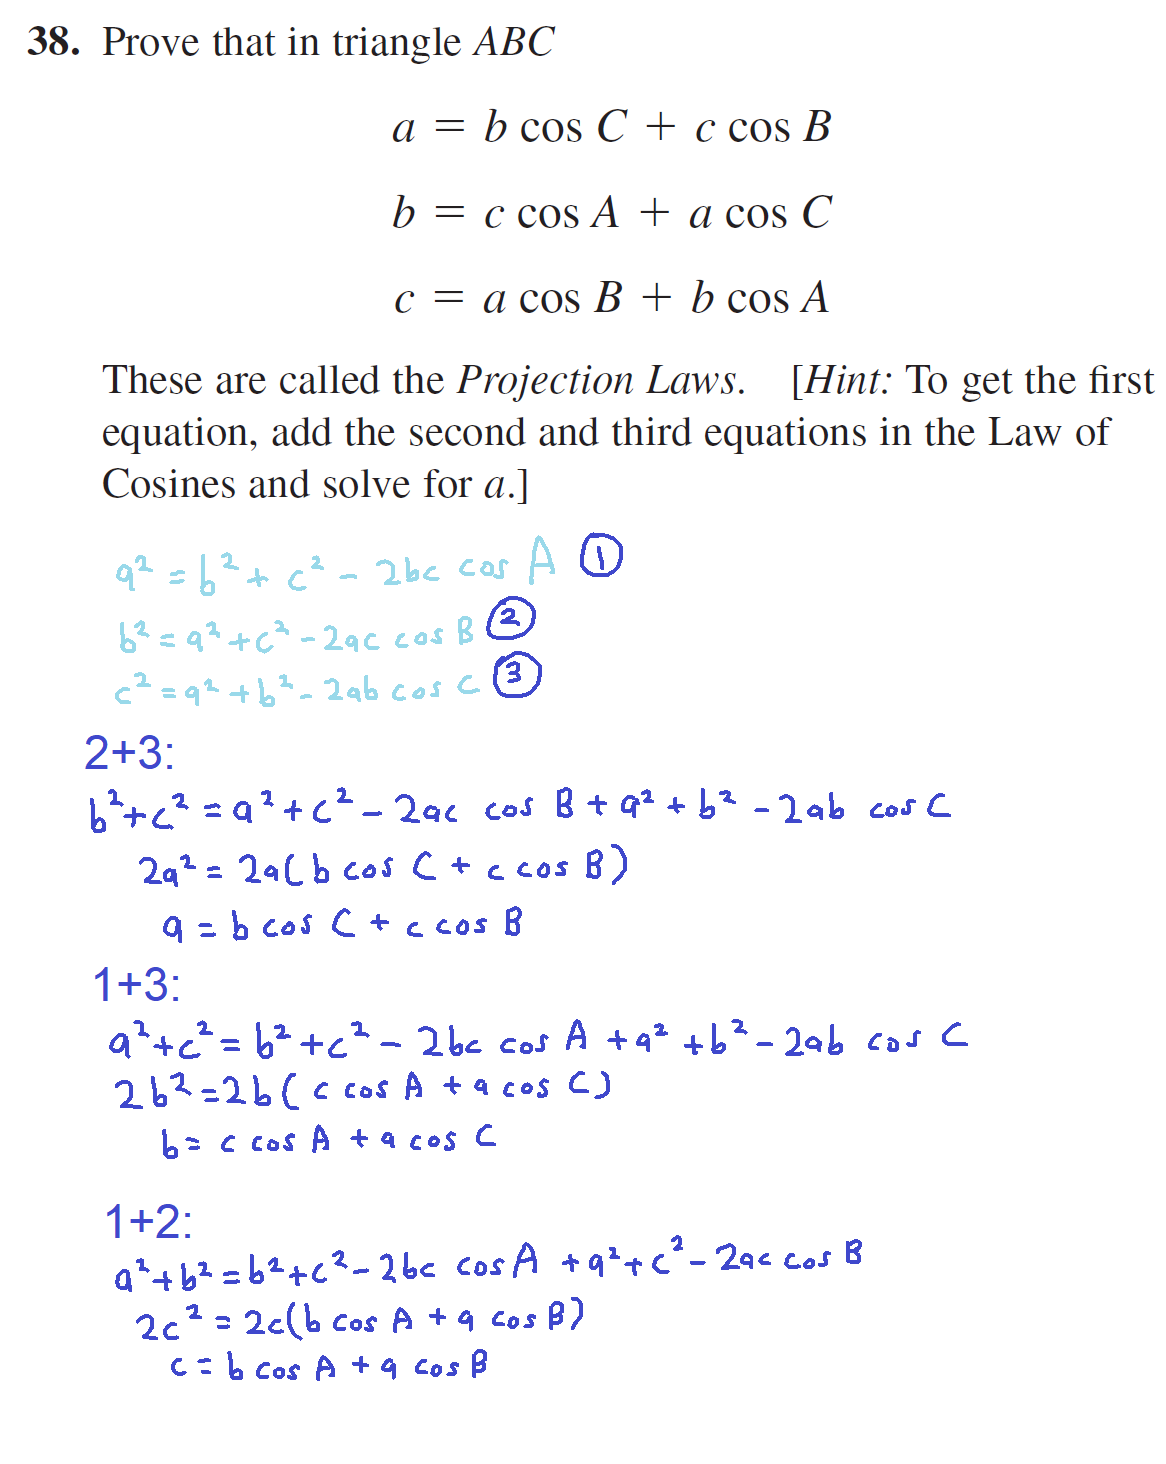 38. Prove that in triangle ABC
a = b cos C + c cos B
b = c cos A + a cos C
c = a cos B + b cos A
These are called the Projection Laws. [Hint: To get the first
equation, add the second and third equations in the Law of
Cosines and solve for a.]
a² = b² + c² - 2bc cos A ①
b² = a² + c² - 2ac cos B ②
c² = a² + b² - 2ab cos C ③
2+3:
b² + c² = a² + c² - 2ac cos B + a² + b² - 2ab cos C
2a² = 2a(b cos C + c cos B)
a = b cos C + c cos B
1+3:
a² + c² = b² + c² - 2bc cos A + a² + b² - 2ab cos C
2b² = 2b(c cos A + a cos C)
b = c cos A + a cos C
1+2:
a² + b² = b² + c² - 2bc cos A + a² + c² - 2ac cos B
2c² = 2c(b cos A + a cos B)
c = b cos A + a cos B